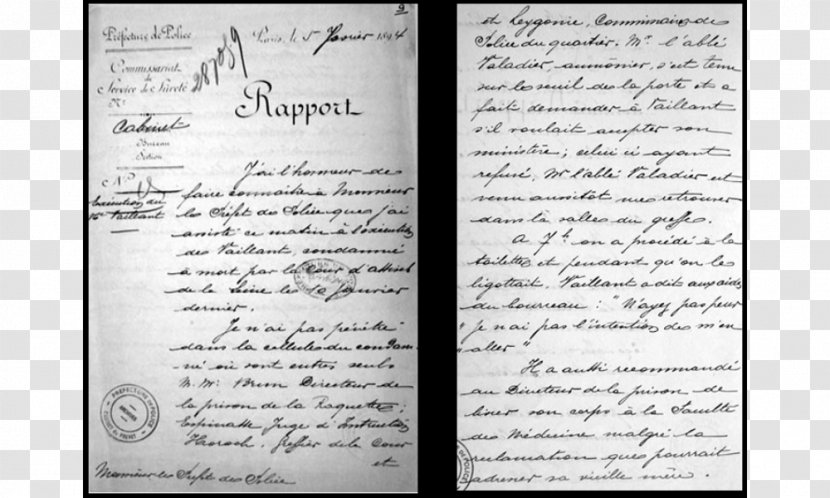 9
Préfecture de Police
Paris, le 5 Février 1894
Commissariat
de
Service de Sûreté
N°
287089
Rapport
Cabinet
Bureau
Section
N°
Exécution du
Né Vaillant
J'ai l'honneur de
faire connaître à Monsieur
le Préfet de Police que j'ai
assisté ce matin à l'exécution
de Vaillant, condamné
à mort par la Cour d'assises
de la Seine le 10 Janvier
dernier.
Je n'ai pas pénétré
dans la cellule du condam-
né où sont entrés seuls
M.M. Brun Directeur de
la prison de la Roquette;
Espinasse Juge d'Instruction
Horoch, Greffier de la Cour
et
Monsieur le Préfet de Police
PREFECTURE DE POLICE
CABINET DU PREFET
et Leygonie, Commissaire de
Police du quartier. Mr. l'abbé
Valadier, aumônier, s'est tenu
sur le seuil de la porte et a
fait demander à Vaillant
s'il voulait accepter son
ministère; celui ci ayant
refusé, Mr l'abbé Valadier est
venu aussitôt me retrouver
dans la salle du greffe.
A 7h on a procédé à la
toilette et pendant qu'on le
ligottait, Vaillant a dit aux aides
du bourreau : "N'ayez pas peur
"je n'ai pas l'intention de m'en
"aller"
Il a aussi recommandé
au Directeur de la prison de
livrer son corps à la Faculté
de Médecine malgré la
réclamation que pourrait
adresser sa vieille mère.